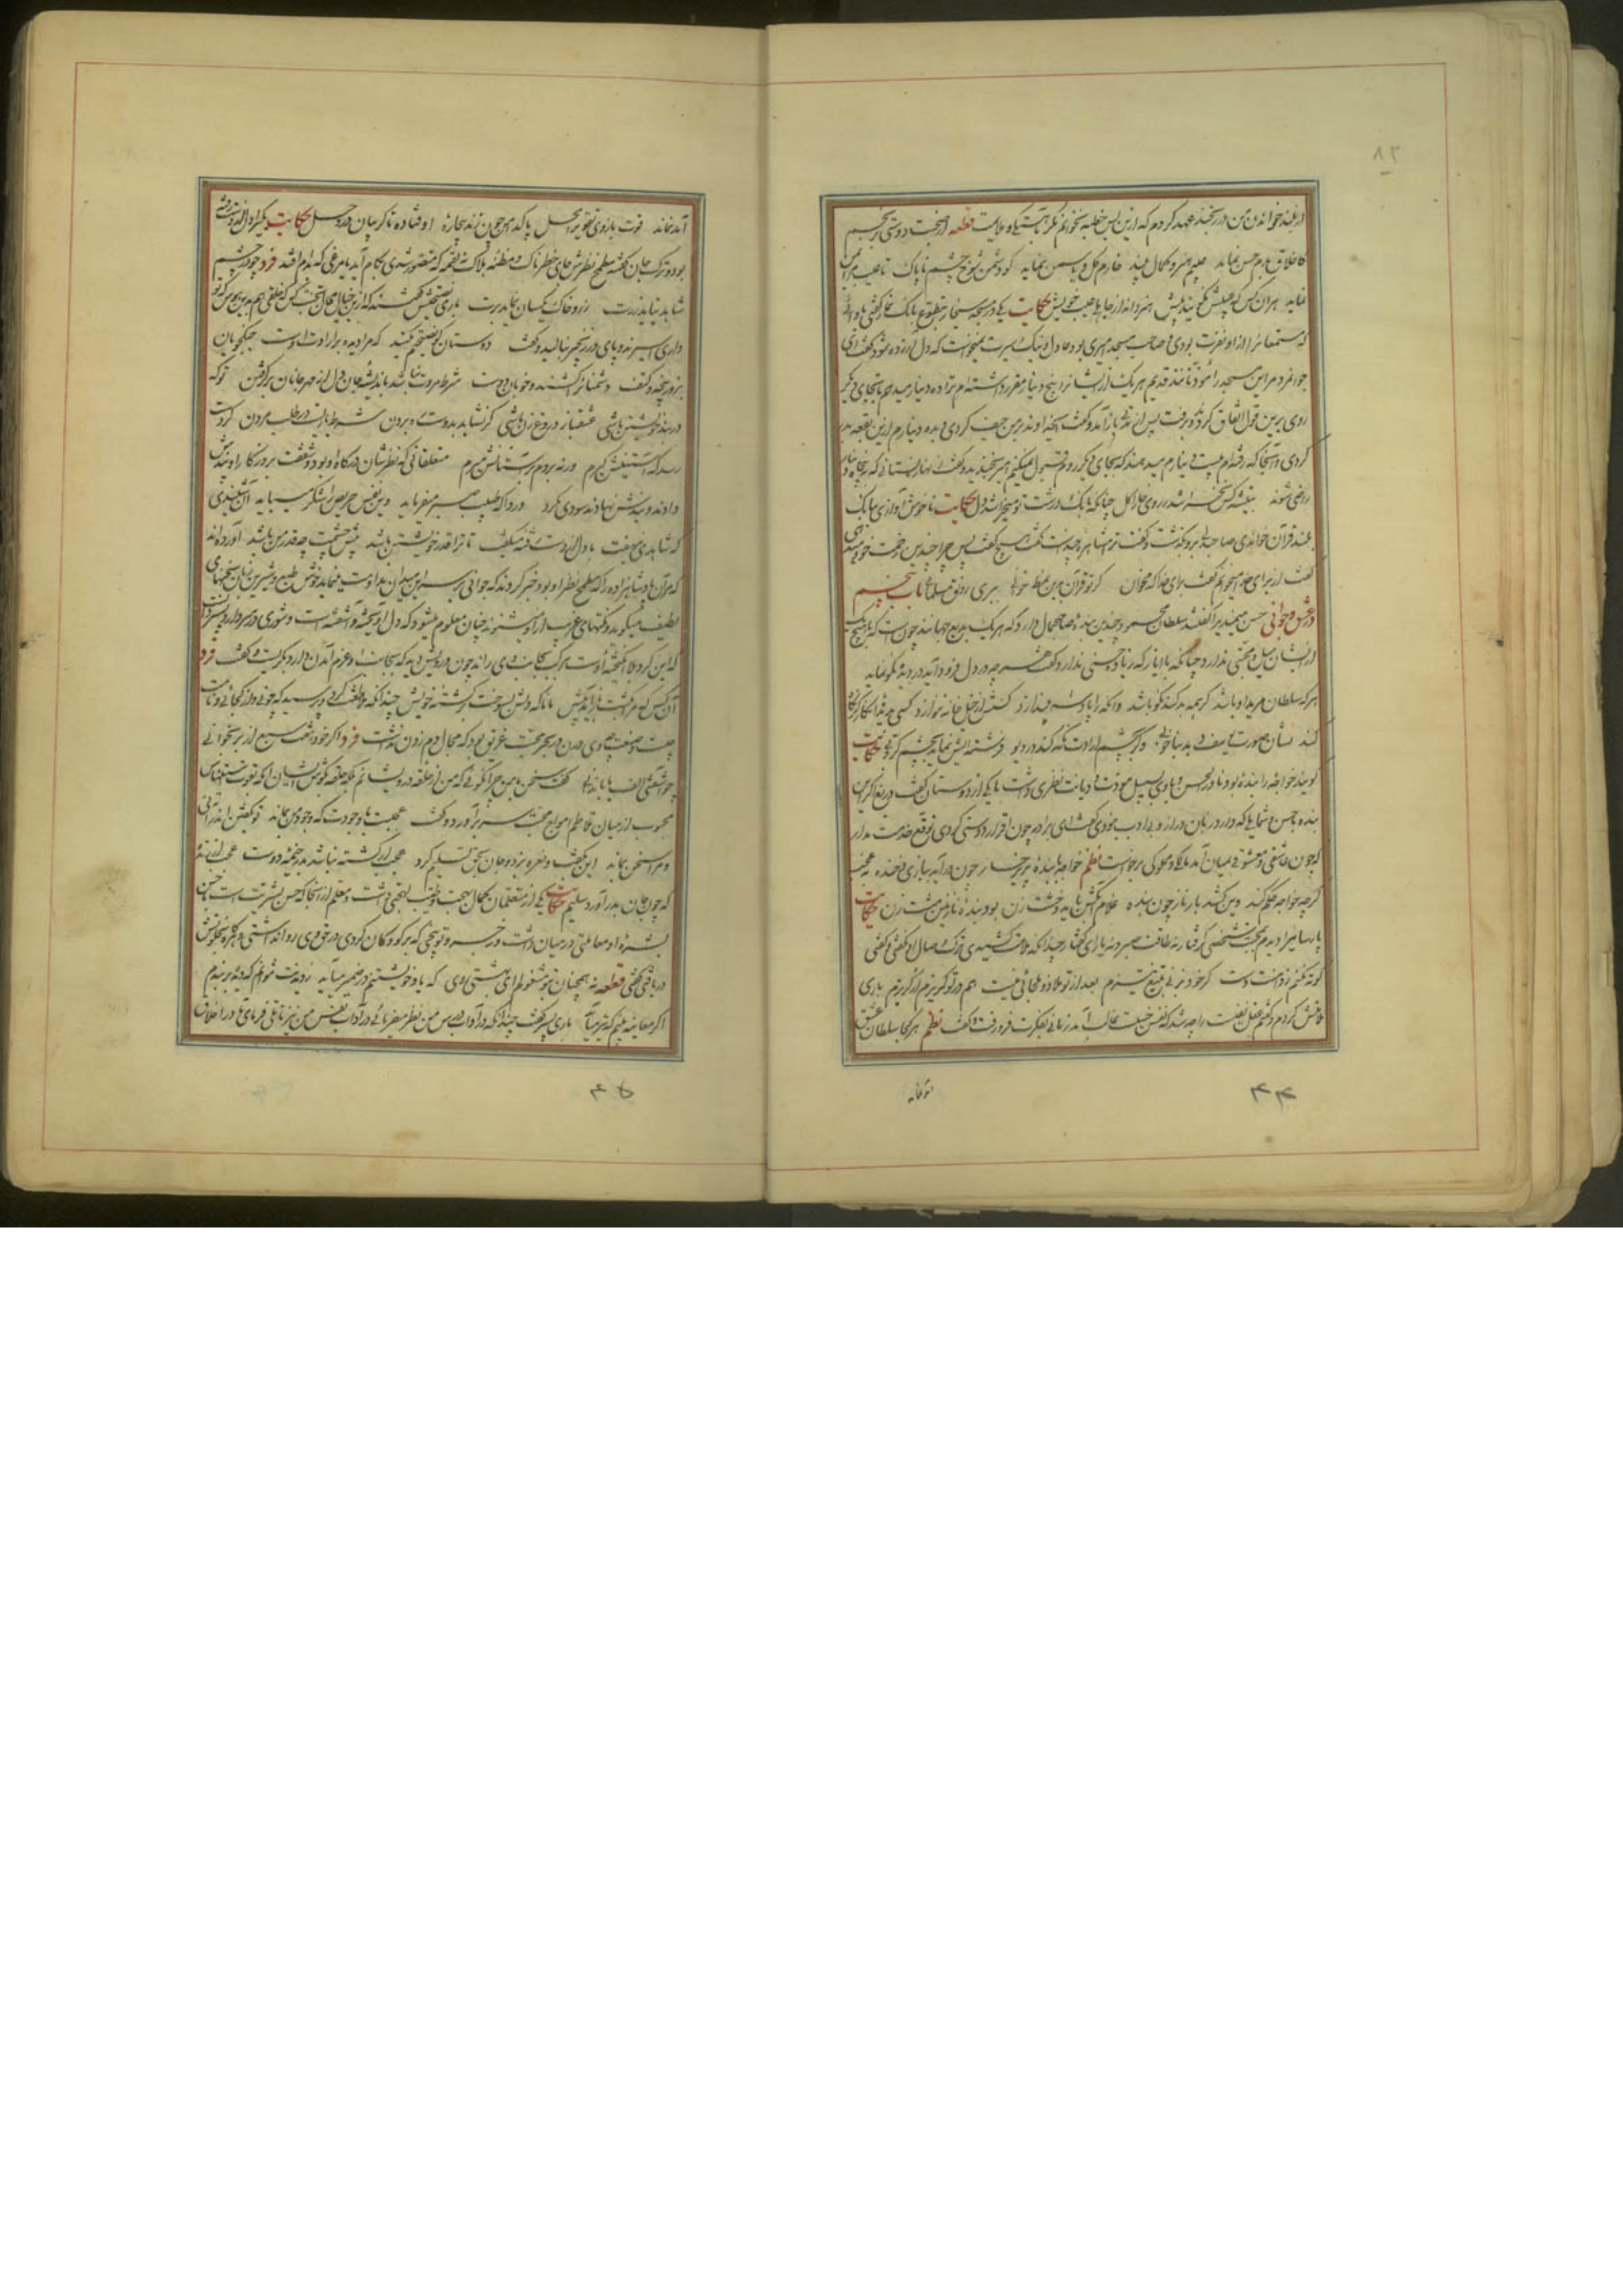 ۸۳
از بلند خواندن من در رنجند عهد کردم که ازین پس خطبه نخوانم مگر بآهستگی و ملایمت قطعه از صحبت دوستی برنجم
کاخلاق بدم حسن نماید عیبم هنر و کمال بیند خارم گل و یاسمن نماید کو دشمن شوخ چشم ناپاک تا عیب مرا بمن
نماید هر آن کس که عیبش نگویند پیش هنر داند از جاهلی عیب خویش حکایت یکی در مسجد سنجار بتطوع بانک نماز گفتی باوازی
که مستمعانرا ازو نفرت بودی و صاحب مسجد امیری بود عادل و نیک سیرت نمیخواست که دل آزرده شود گفت ای
جوانمرد مر این مسجد را مؤذنانند قدیم هر یک ازیشانرا پنج دینار مقرر داشته‌ام ترا ده دینار میدهم تا بجای دیگر
روی برین قول اتفاق کردند و برفت پس از مدتی باز آمد و گفت ای خداوند بر من حیف کردی که بده دینارم ازین بقعه بدر
کردی و آنجا که رفته‌ام بیست دینارم میدهند که بجای دیگر روم و قبول نمیکنم امیر بخندید و گفت زنهار نستانی که به پنجاه دینار
راضی شوند به تیشه کس نخراشد ز روی خارا گل چنانکه بانک درشت تو میخراشد دل حکایت ناخوش آوازی ببانک
بلند قرآن خواندی صاحبدلی برو بگذشت و گفت ترا مشاهره چندست گفت هیچ گفت پس چرا چندین زحمت خود میدهی
گفت از برای خدا میخوانم گفت برای خدا که مخوان گر تو قرآن بدین نمط خوانی ببری رونق مسلمانی باب پنجم
در عشق و جوانی حسن میمندیرا گفتند سلطان محمود چندین بنده صاحب جمال دارد که هر یک بدیع جهانند چونست که با هیچیک
از ایشان میل و محبتی ندارد چنانکه با ایاز که زیادت حسنی ندارد گفت هر چه در دل فرود آید در دیده نکو نماید
هر که سلطان مرید او باشد گر همه بد کند نکو باشد وانکه را پادشه بیندازد کسش از خیل خانه ننوازد کسی بدیده انکار گر نگاه
کند نشان صورت یوسف دهد بناخوبی وگر بچشم ارادت نگه کند در دیو فرشته ایش نماید بچشم کروبی حکایت
گویند خواجه را بنده بود نادر الحسن و با وی بسبیل مودت و دیانت نظری داشت با یکی از دوستان گفت دریغ اگر این
بنده با حسن و شمایلی که دارد زبان دراز و بی ادب نبودی گفت ای برادر چون اقرار دوستی کردی توقع خدمت مدار
که چون عاشقی و معشوقی در میان آمد مالکی و مملوکی برخاست نظم خواجه با بنده پری رخسار چون در آید ببازی و خنده نه عجب
گر چو خواجه حکم کند وین کشد بار ناز چون بنده غلام آبکش باید و خشت زن بود بنده نازنین مشت زن حکایت
پارسائیرا دیدم بمحبت شخصی گرفتار نه طاقت صبر و نه یارای گفتار چندانکه ملامت کشیدی ترک وصال او نگفتی و گفتی
کوته نکنم ز دامنت دست گر خود بزنی بتیغ تیزم بعد از تو ملاذ و ملجائی نیست هم در تو گریزم ار گریزم باری
ملامتش کردم و گفتم عقل نفیست را چه شد که نفس خسیست غالب آمد زمانی بفکرت فرو رفت و گفت نظم هر کجا سلطان عشق
۴۴
آمد نماند قوت بازوی تقویرا محل پاکدامن چون زید بیچاره اوفتاده تا گریبان در وحل حکایت یکیرا دل از دست رفته
بود و ترک جان گفته مطمح نظرش جای خطرناک و مظنه هلاک نه لقمه که متصور شدی که بکام آید یا مرغی که بدام افتد فرد چو در چشم
شاهد نیاید زرت زر و خاک یکسان نماید برت باری بنصیحتش گفتند که ازین خیال محال تجنب کن که خلقی هم بدین هوس که تو
داری اسیرند و پای در زنجیر بنالید و گفت دوستان گو نصیحتم مکنید که مرا دیده بر ارادت اوست جنگجویان
بزور پنجه و کتف دشمنانرا کشند و خوبان دوست شرط مروت نباشد باندیشه جان دل از مهر جانان برگرفتن تو که
در بند خویشتن باشی عشقباز دروغ زن باشی گر نشاید بدوست ره بردن شرط یاریست در طلب مردن گر دست
رسد که آستینش گیرم ورنه بروم بر آستانش میرم متعلقانی که نظرشان در کار او بود و شفقت بروزگار او پندش
دادند و بندش نهادند سودی نکرد دردا که طبیب صبر میفرماید وین نفس حریص را شکر میباید آن شنیدی
که شاهدی بنهفت با دل از دست رفته میگفت تا ترا قدر خویشتن باشد پیش چشمت چه قدر من باشد آورده‌اند
که مر آن پادشاهزاده را که مطمح نظر او بود خبر کردند که جوانی بر سر این میدان مداومت مینماید خوش طبع و شیرین زبان سخنهای
لطیف میگوید و نکتهای غریب ازو میشنوند چنان معلوم میشود که دل آویخته و آشفته است و شوری در سر دارد پسر دانست
که این گرد بلا انگیخته اوست مرکب بجانب وی راند چون درویش دید که بجانب او عزم آمدن دارد بگریست و گفت فرد
آنکس که مرا بکشت باز آمد پیش مانا که دلش بسوخت بر کشته خویش چندانکه ملاطفت کرد و پرسید که چونی و از کجائی و نامت
چیست و صنعت چه دانی در بحر محبت غریق بود که مجال دم زدن نداشت فرد اگر خود هفت سبع از بر بخوانی
چو آشفتی الف با تا ندانی گفت سخن با من چرا نگوئی که من از حلقه درویشانم بلکه حلقه بگوش ایشان آنگه بقوت استیناس
محبوب از میان تلاطم امواج محبت سر بر آورد و گفت عجبست با وجودت که وجود من بماند تو بگفتن اندر آئی
و مرا سخن بماند این بگفت و نعره بزد و جان بحق تسلیم کرد عجب از کشته نباشد بدر خیمه دوست عجب از زنده
که چون جان بدر آورد سلیم حکایت یکی از متعلمان کمال بهجت و طیب لهجتی داشت و معلم از آنجا که حسن بشریت است با حسن
بشره او معاملتی در میان داشت و زجر و توبیخی که بر کودکان کردی در حق وی روا نداشتی و هرگاه بخلوتش
دریافتی گفتی قطعه نه همچنان بتو مشغولم ای بهشتی روی که یاد خویشتنم در ضمیر میآید ز دیدنت نتوانم که دیده بربندم
اگر معاینه بینم که تیر میآید باری پسر گفت چندانکه در آداب درس من نظر میفرمائی در آداب نفس من نیز تاملی فرمای تا در اخلاق
۴۵